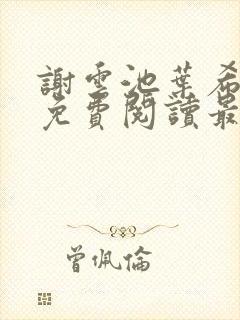 謝雲池葉希
免費閱讀最
曾佩倫